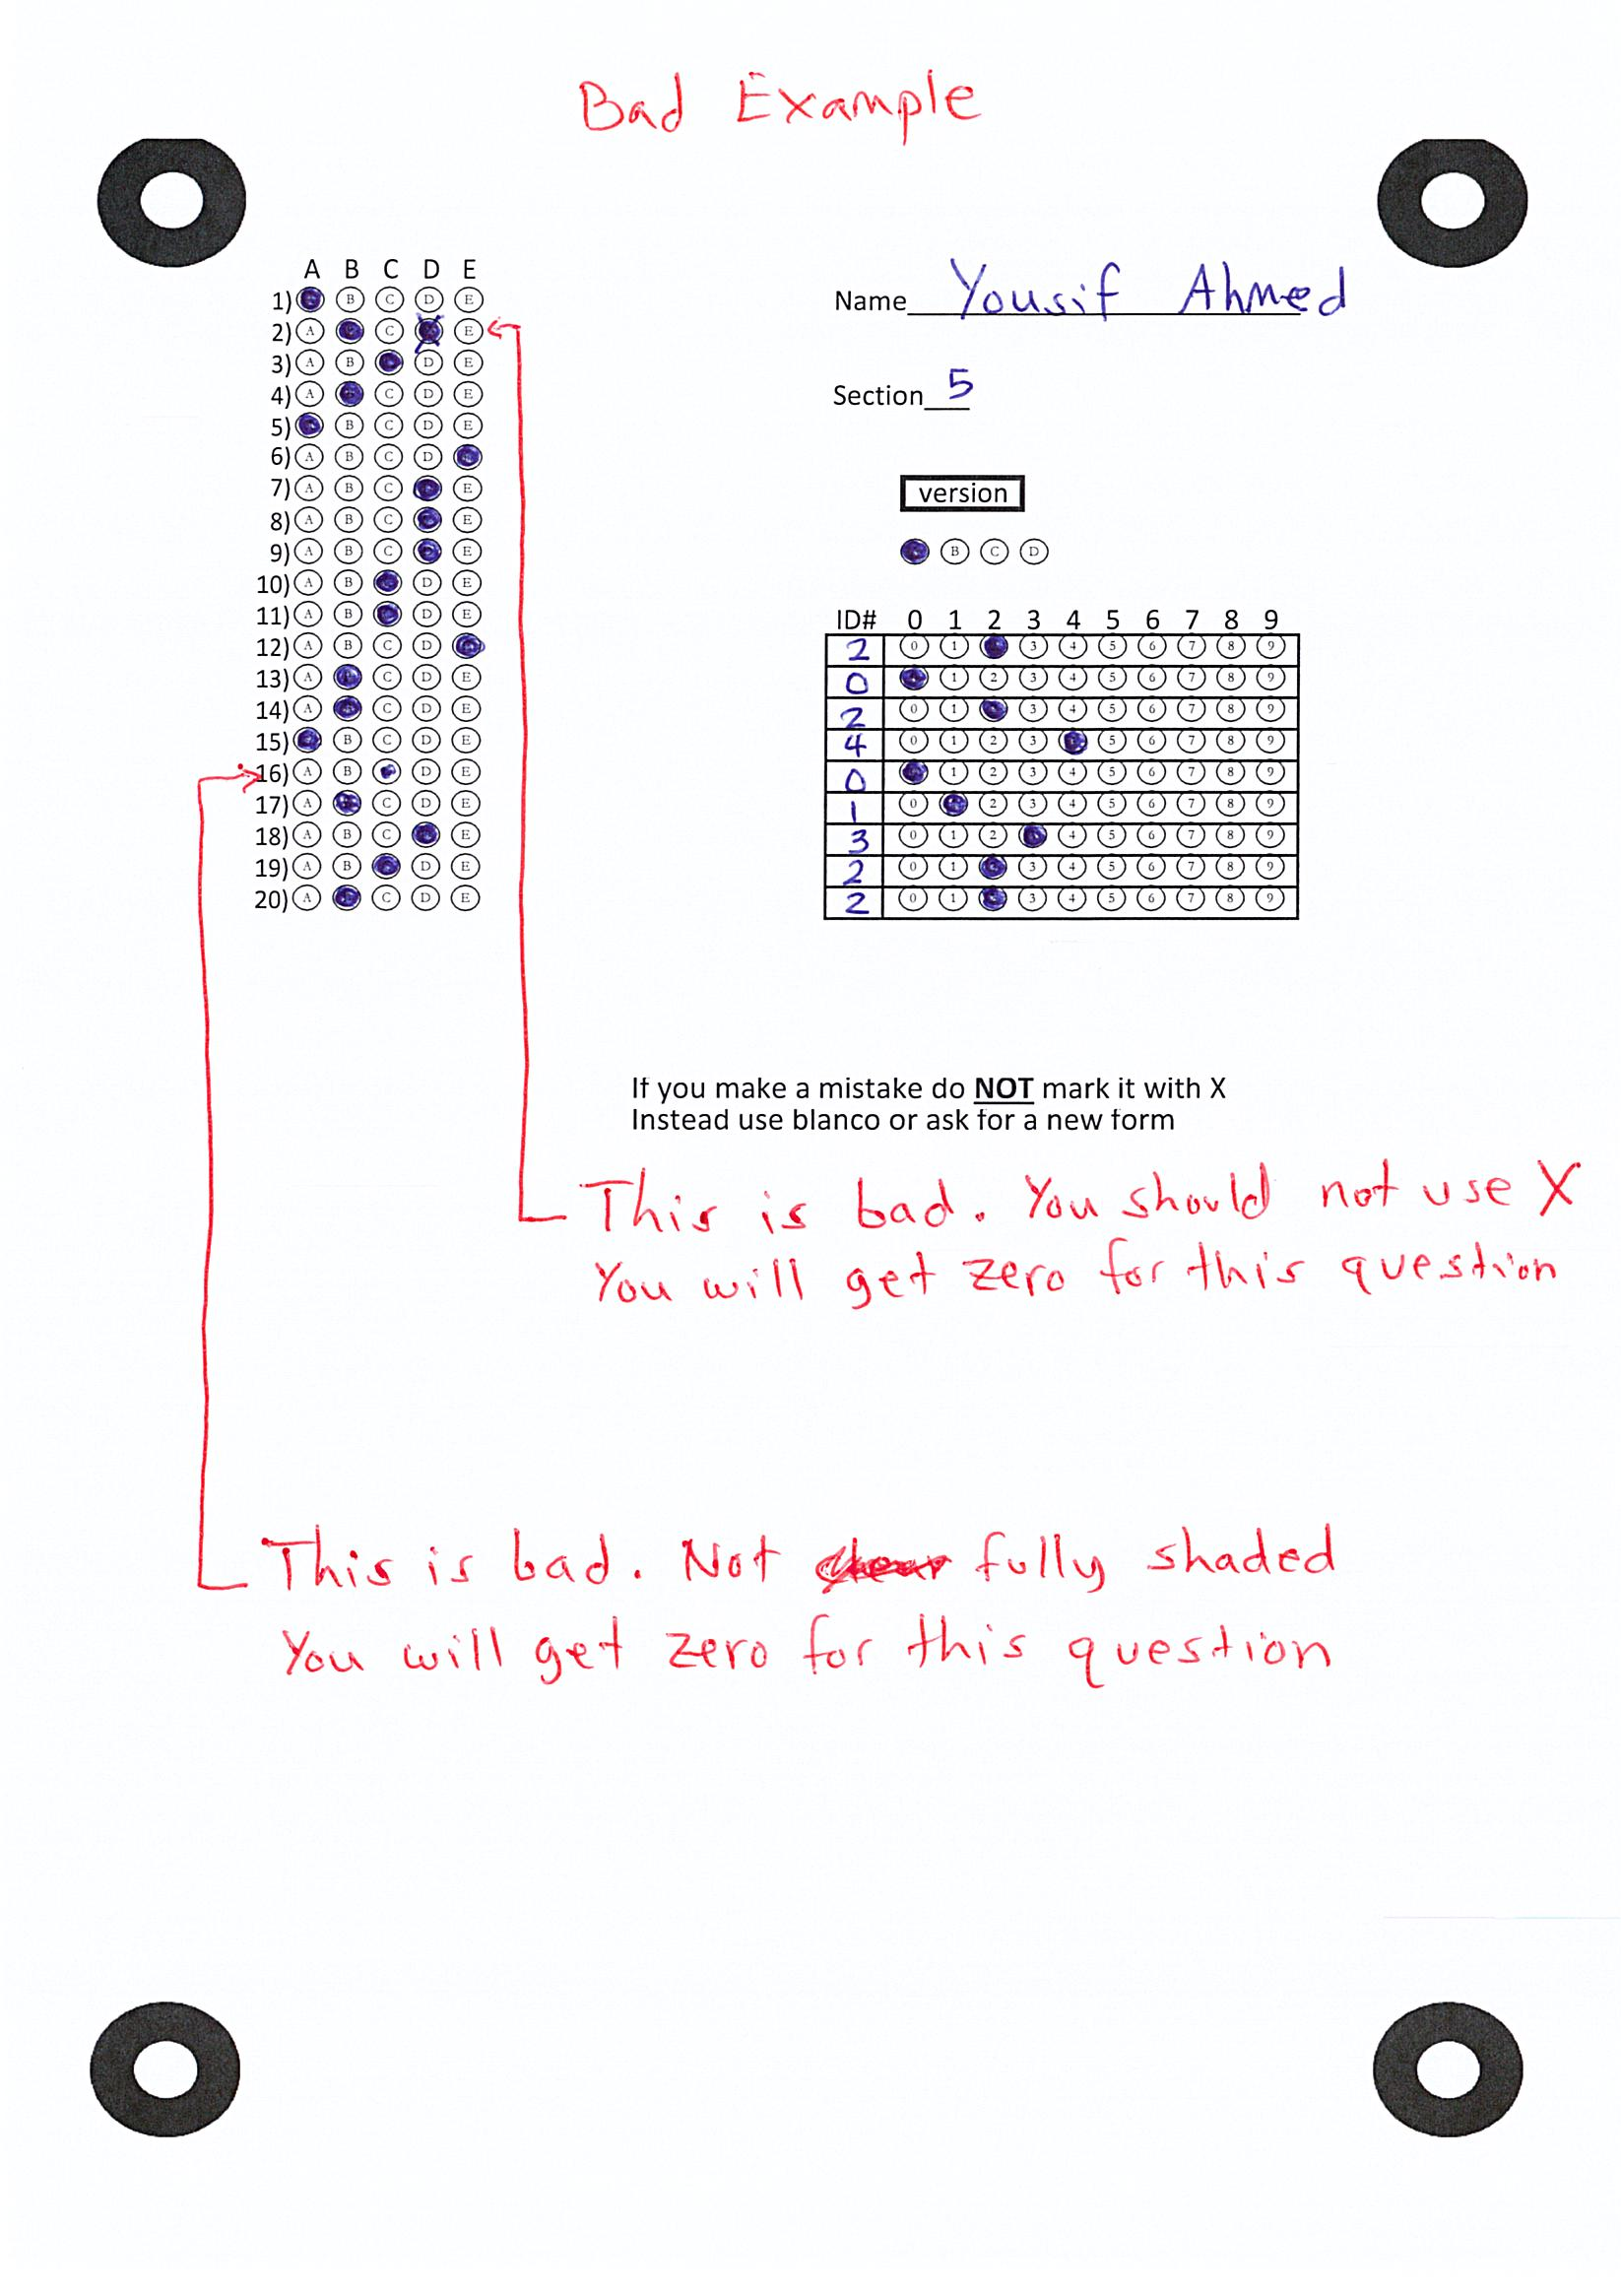 Bad Example
A B C D E
1) B C D E
2) A C E
3) A B D E
4) A C D E
5) B C D E
6) A B C D
7) A B C E
8) A B C E
9) A B C E
10) A B D E
11) A B D E
12) A B C D
13) A C D E
14) A C D E
15) B C D E
16) A B D E
17) A C D E
18) A B C E
19) A B D E
20) A C D E
Name Yousif Ahmed
Section 5
version
B C D
ID# 0 1 2 3 4 5 6 7 8 9
2 0 1 3 4 5 6 7 8 9
0 1 2 3 4 5 6 7 8 9
2 0 1 3 4 5 6 7 8 9
4 0 1 2 3 5 6 7 8 9
0 1 2 3 4 5 6 7 8 9
1 0 2 3 4 5 6 7 8 9
3 0 1 2 4 5 6 7 8 9
2 0 1 3 4 5 6 7 8 9
2 0 1 3 4 5 6 7 8 9
If you make a mistake do NOT mark it with X
Instead use blanco or ask for a new form
This is bad. You should not use X
You will get zero for this question
This is bad. Not fully shaded
You will get zero for this question